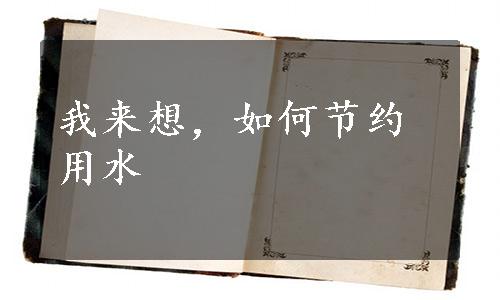 我来想，如何节约
用水